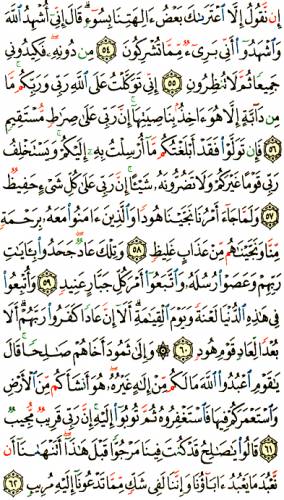 إِن نَّقُولُ إِلَّا ٱعْتَرَىٰكَ بَعْضُ ءَالِهَتِنَا بِسُوٓءٍ ۗ قَالَ إِنِّىٓ أُشْهِدُ ٱللَّهَ
وَٱشْهَدُوٓا۟ أَنِّى بَرِىٓءٌ مِّمَّا تُشْرِكُونَ ٥٤ مِن دُونِهِۦ ۖ فَكِيدُونِى
جَمِيعًا ثُمَّ لَا تُنظِرُونِ ٥٥ إِنِّى تَوَكَّلْتُ عَلَى ٱللَّهِ رَبِّى وَرَبِّكُم ۚ مَّا
مِن دَآبَّةٍ إِلَّا هُوَ ءَاخِذٌۢ بِنَاصِيَتِهَآ ۚ إِنَّ رَبِّى عَلَىٰ صِرَٰطٍ مُّسْتَقِيمٍ
٥٦ فَإِن تَوَلَّوْا۟ فَقَدْ أَبْلَغْتُكُم مَّآ أُرْسِلْتُ بِهِۦٓ إِلَيْكُمْ ۚ وَيَسْتَخْلِفُ
رَبِّى قَوْمًا غَيْرَكُمْ وَلَا تَضُرُّونَهُۥ شَيْـًٔا ۚ إِنَّ رَبِّى عَلَىٰ كُلِّ شَىْءٍ حَفِيظٌ
٥٧ وَلَمَّا جَآءَ أَمْرُنَا نَجَّيْنَا هُودًا وَٱلَّذِينَ ءَامَنُوا۟ مَعَهُۥ بِرَحْمَةٍ
مِّنَّا وَنَجَّيْنَٰهُم مِّنْ عَذَابٍ غَلِيظٍ ٥٨ وَتِلْكَ عَادٌ ۖ جَحَدُوا۟ بِـَٔايَٰتِ
رَبِّهِمْ وَعَصَوْا۟ رُسُلَهُۥ وَٱتَّبَعُوٓا۟ أَمْرَ كُلِّ جَبَّارٍ عَنِيدٍ ٥٩ وَأُتْبِعُوا۟
فِى هَٰذِهِ ٱلدُّنْيَا لَعْنَةً وَيَوْمَ ٱلْقِيَٰمَةِ ۗ أَلَآ إِنَّ عَادًا كَفَرُوا۟ رَبَّهُمْ ۗ أَلَا
بُعْدًا لِّعَادٍ قَوْمِ هُودٍ ٦٠ ۞ وَإِلَىٰ ثَمُودَ أَخَاهُمْ صَٰلِحًا ۚ قَالَ
يَٰقَوْمِ ٱعْبُدُوا۟ ٱللَّهَ مَا لَكُم مِّنْ إِلَٰهٍ غَيْرُهُۥ ۖ هُوَ أَنشَأَكُم مِّنَ ٱلْأَرْضِ
وَٱسْتَعْمَرَكُمْ فِيهَا فَٱسْتَغْفِرُوهُ ثُمَّ تُوبُوٓا۟ إِلَيْهِ ۚ إِنَّ رَبِّى قَرِيبٌ مُّجِيبٌ
٦١ قَالُوا۟ يَٰصَٰلِحُ قَدْ كُنتَ فِينَا مَرْجُوًّا قَبْلَ هَٰذَآ ۖ أَتَنْهَىٰنَآ أَن
نَّعْبُدَ مَا يَعْبُدُ ءَابَآؤُنَا وَإِنَّنَا لَفِى شَكٍّ مِّمَّا تَدْعُونَآ إِلَيْهِ مُرِيبٍ ٦٢